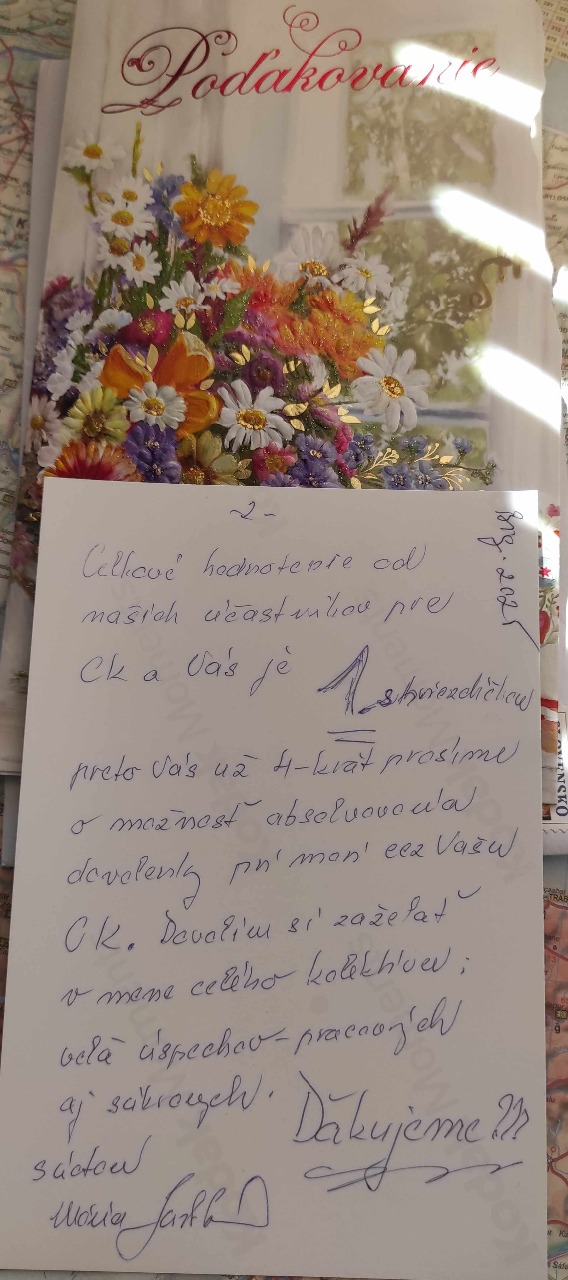 Poďakovanie
- 2 -
aug. 2025
Celkové hodnotenie od
našich účastníkov pre
CK a Vás je 1 s hviezdičkou
preto Vás už 4-krát prosíme
o možnosť absolvovania
dovolenky pri mori cez Vašu
CK. Dovolím si zaželať
v mene celého kolektívu:
veľa úspechov - pracovných
aj súkromných.
Ďakujeme!!!
s úctou
Mária